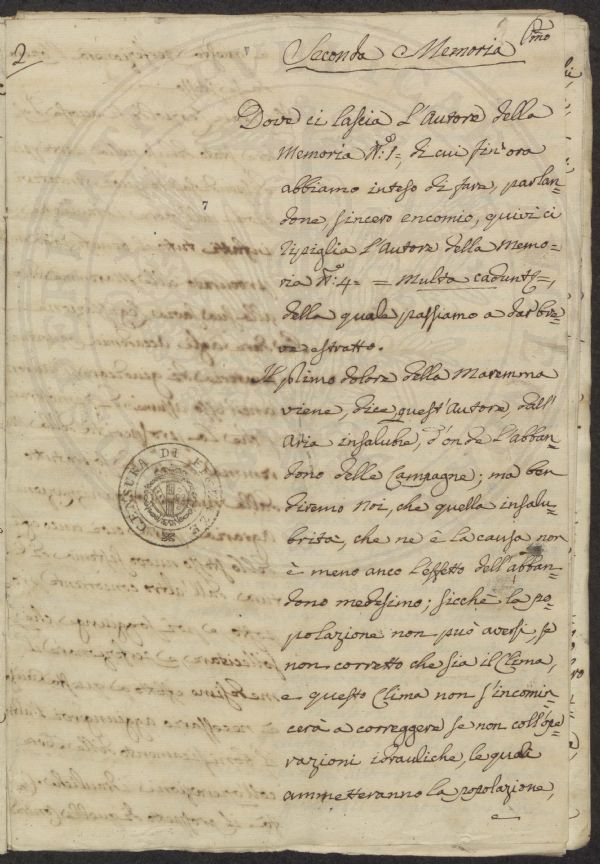 2
Seconda Memoria
Dove ci lascia l'Autore della
Memoria N.º 1=, di cui fin'ora
abbiamo inteso di fare, parlan-
done sincero encomio, quivi ci
ripiglia l'Autore della Memo-
ria N.º 4= = Multa cadunt &=,
della quale passiamo a dar bre-
ve estratto.
Il primo dolore della Maremma
viene, dice quest'Autore, dall'
Aria insalubre, d'onde l'abban-
dono delle Campagne; ma ben
diremo Noi, che quella insalu-
brità, che ne è la causa non
è meno anco l'effetto dell'abban-
dono medesimo; sicchè la po-
polazione non può aversi, se
non corretto che sia il Clima,
e questo Clima non s'incomin-
cerà a correggere se non coll'ope-
razioni idrauliche, le quali
ammetteranno la popolazione,
e
CENSURA DI